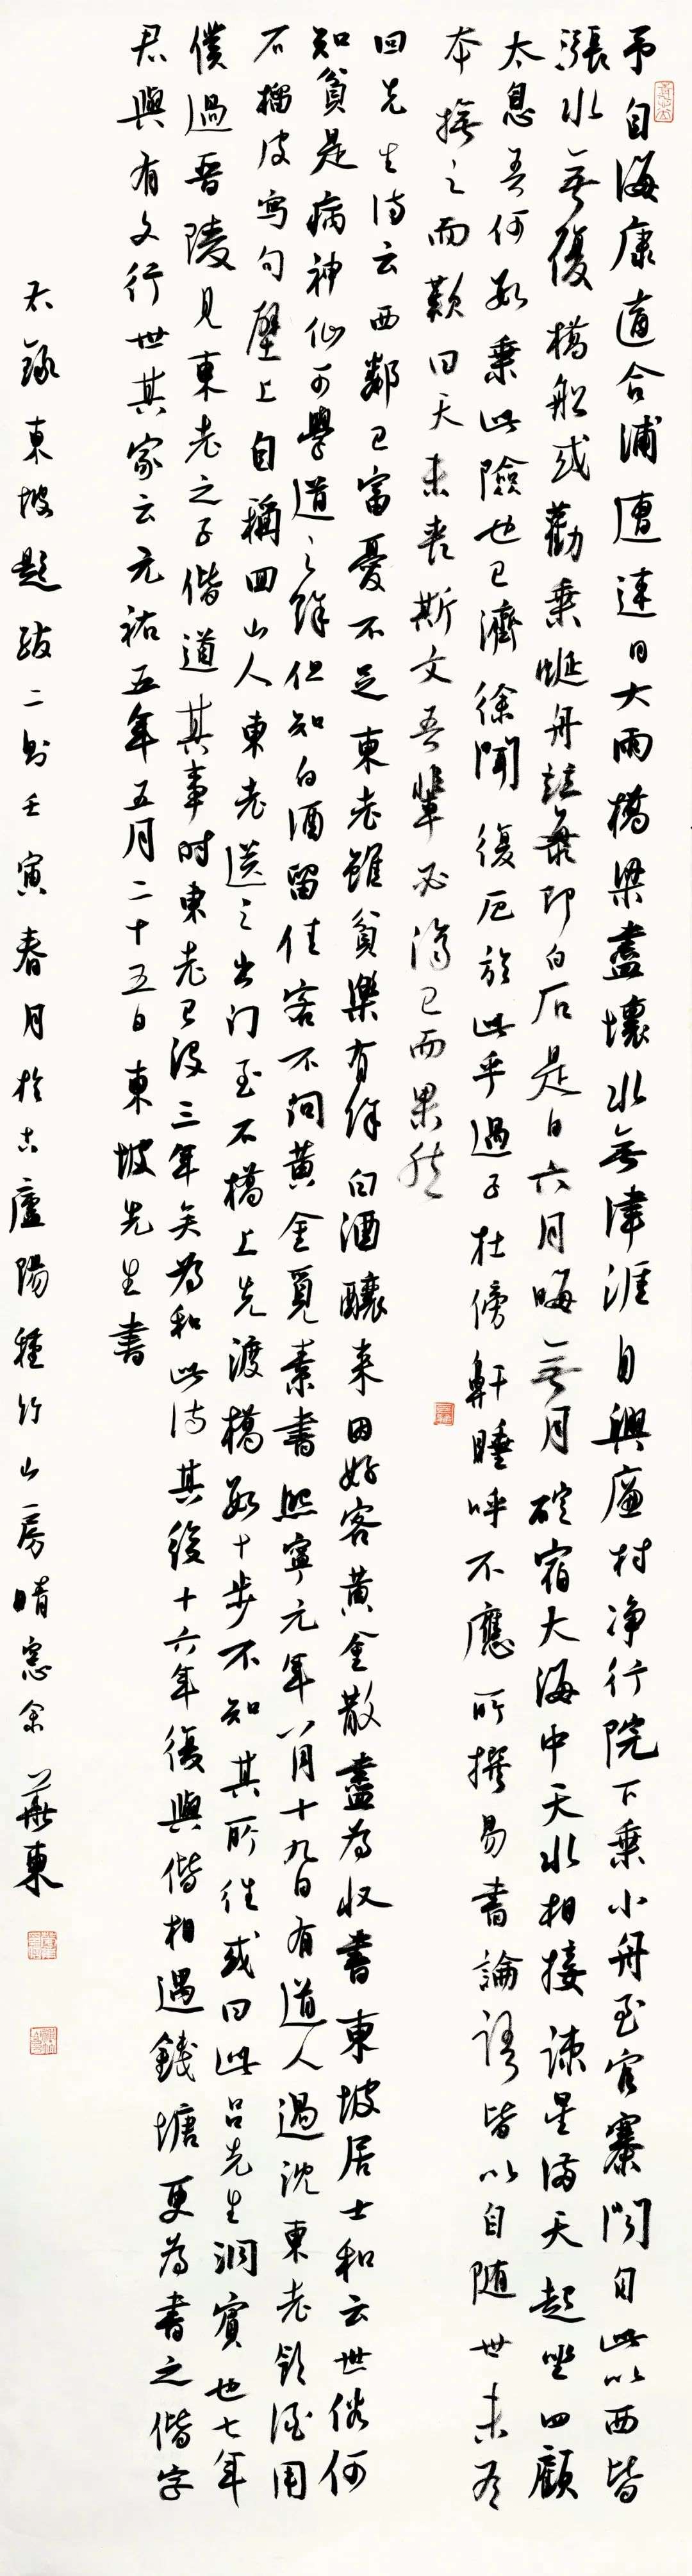 予自海康適合浦遭連日大雨橋梁盡壞水無津涯自興廉村淨行院下乘小舟至官寨聞自此以西皆
漲水無復橋船或勸乘蜑舟並海即白石是日六月晦無月碇宿大海中天水相接疎星滿天起坐四顧
太息吾何數乘此險也已濟徐聞復厄於此乎過子在傍鼾睡呼不應所撰易書論語皆以自隨世未有
本撫之而歎曰天未喪斯文吾輩必濟已而果然
回先生詩云西鄰已富憂不足東老雖貧樂有餘白酒釀來因好客黃金散盡為收書東坡居士和云世俗何
知貧是病神仙可學道之餘但知白酒留佳客不問黃金覓素書熙寧元年八月十九日有道人過沈東老飲酒用
石榴皮寫句壁上自稱回山人東老送之出门至石橋上先渡橋數十步不知其所往或曰此呂先生洞賓也七年
僕過晉陵見東老之子偕道其事時東老已沒三年矣為和此詩其後十六年復與偕相遇錢塘更為書之偕字
君與有文行世其家云元祐五年五月二十五日東坡先生書
右錄東坡題跋二則壬寅春月於古廬陽種竹山房晴窓余華東